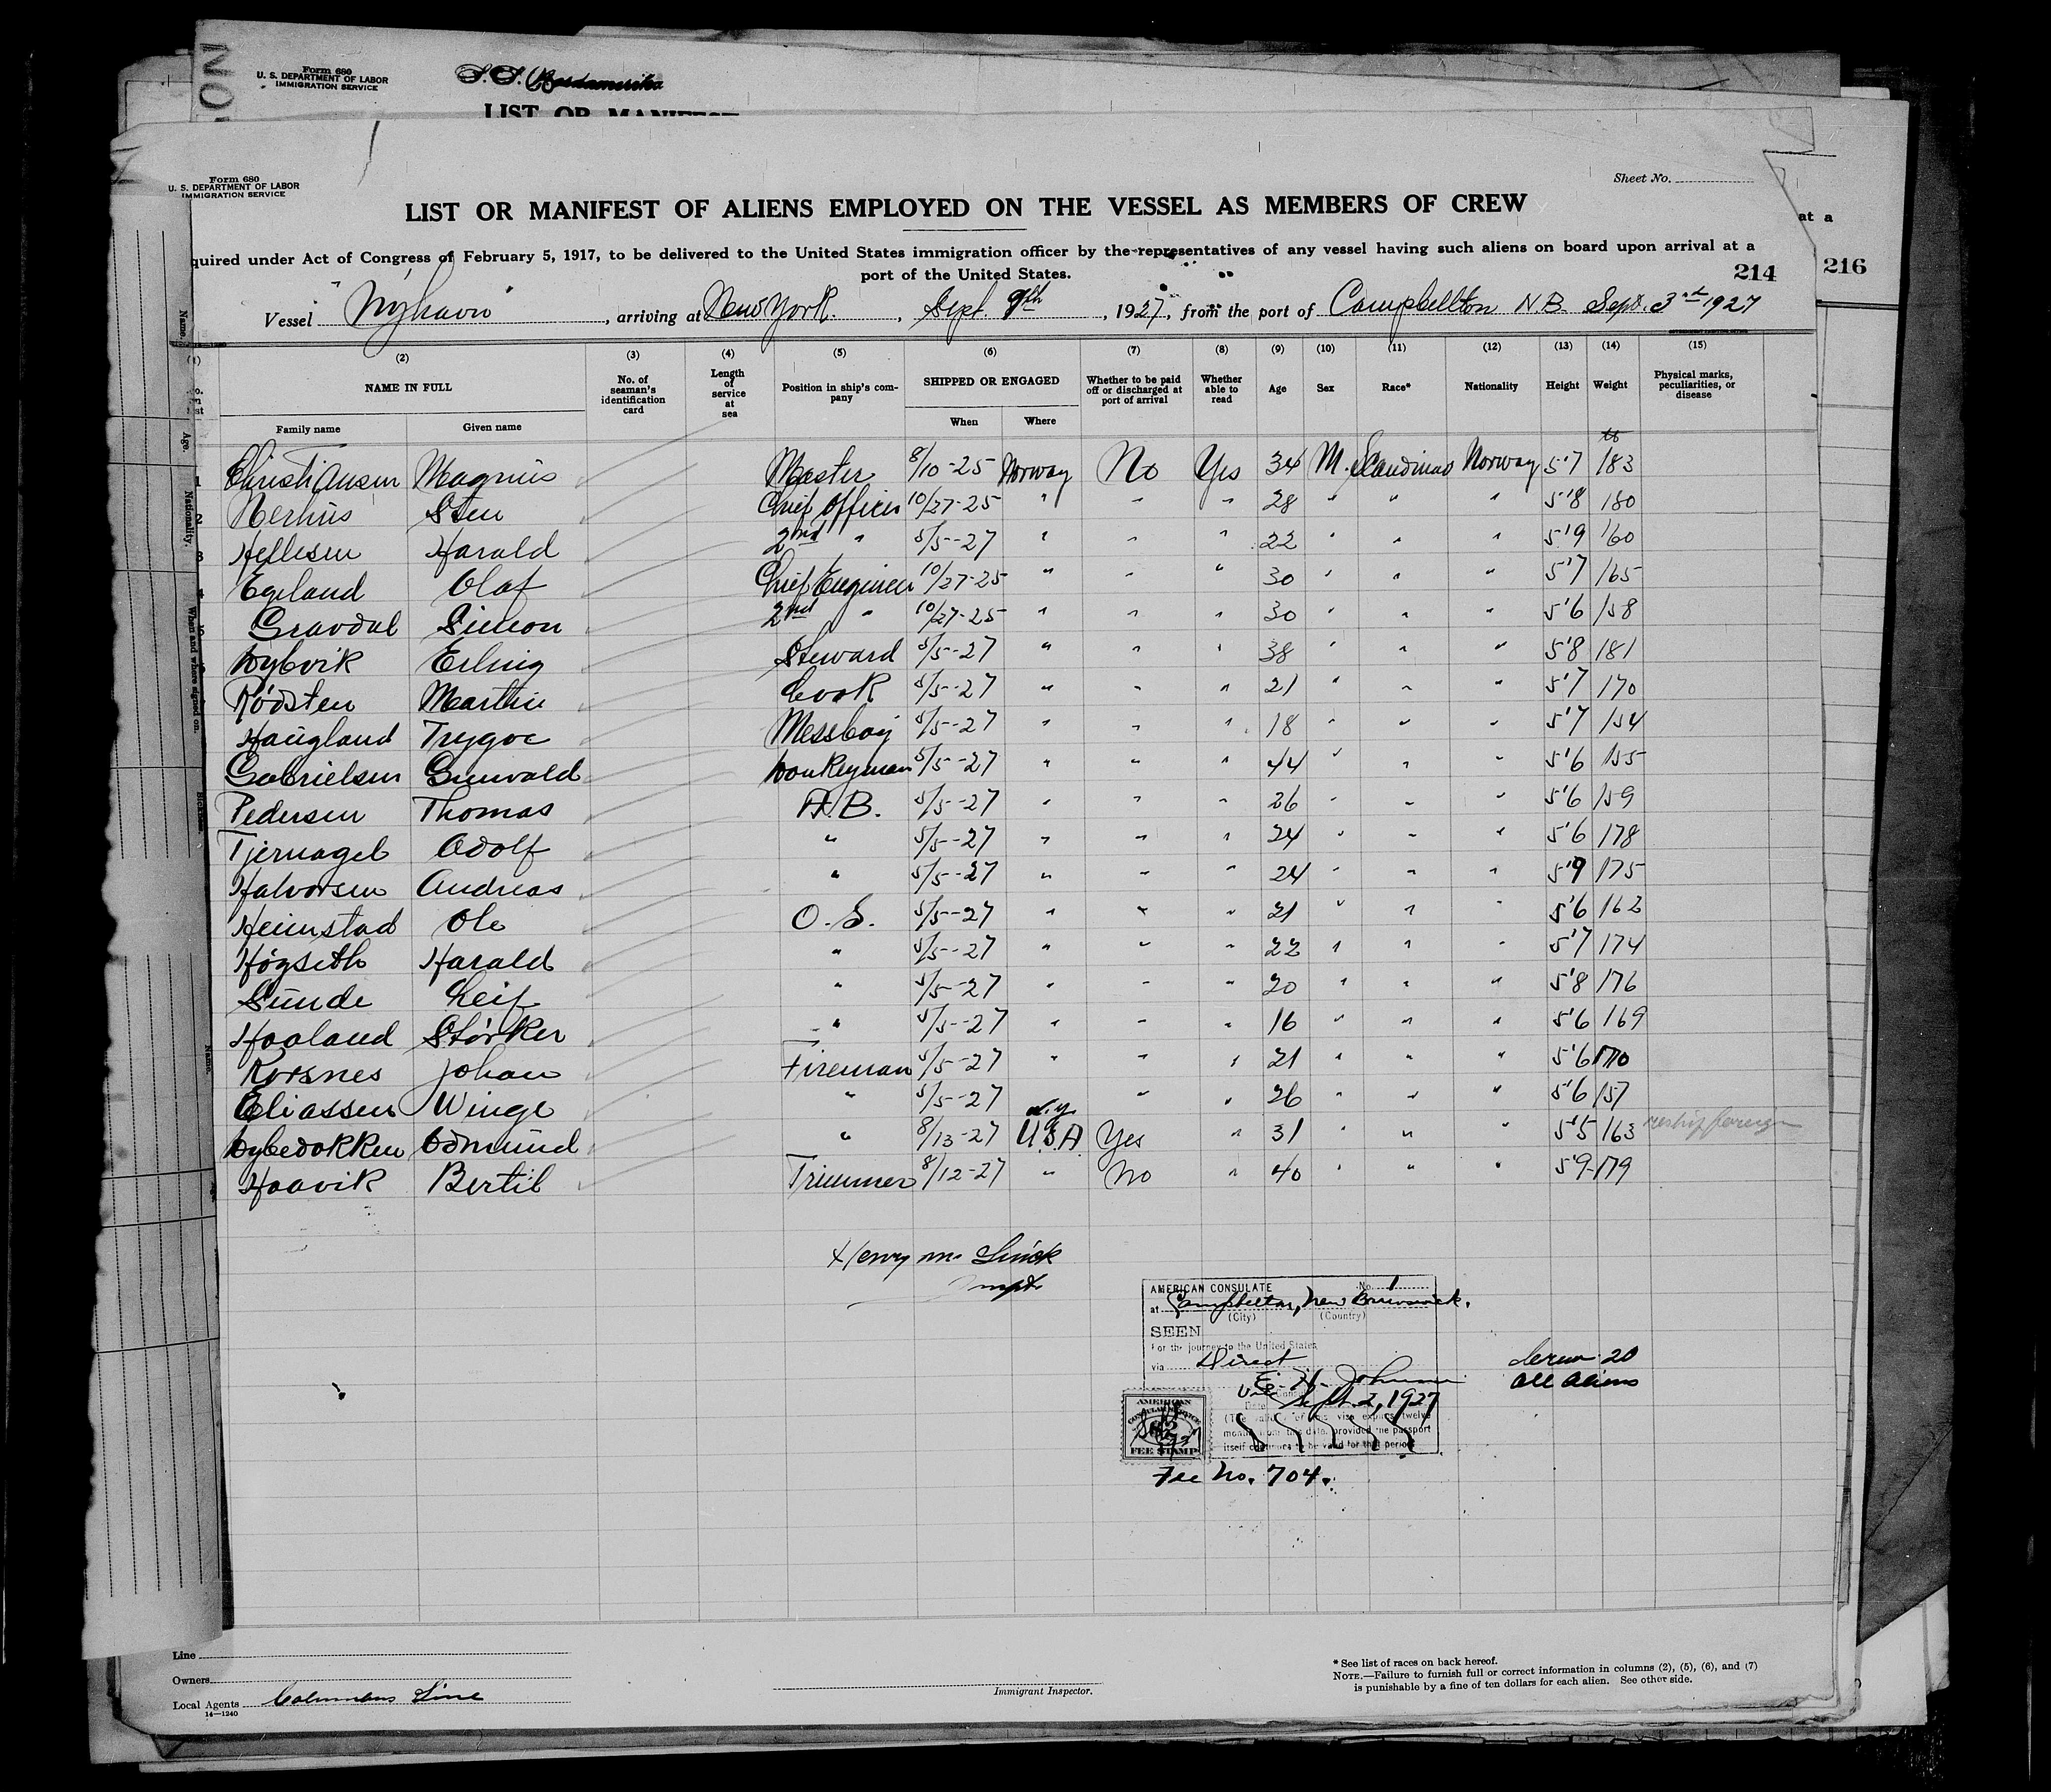 Form 680
U. S. DEPARTMENT OF LABOR
IMMIGRATION SERVICE
S.S.
LIST OR MANIFEST
Form 680
U. S. DEPARTMENT OF LABOR
IMMIGRATION SERVICE
Sheet No.
LIST OR MANIFEST OF ALIENS EMPLOYED ON THE VESSEL AS MEMBERS OF CREW
at a
quired under Act of Congress of February 5, 1917, to be delivered to the United States immigration officer by the representatives of any vessel having such aliens on board upon arrival at a
port of the United States.
214 216
Vessel "Nyhavn", arriving at New York, Sept 9th, 1927, from the port of Campbellton N.B. Sept. 3rd 1927
(1) (2) (3) (4) (5) (6) (7) (8) (9) (10) (11) (12) (13) (14) (15)
NAME IN FULL No. of seaman's identification card Length of service at sea Position in ship's company SHIPPED OR ENGAGED Whether to be paid off or discharged at port of arrival Whether able to read Age Sex Race* Nationality Height Weight Physical marks, peculiarities, or disease
Family name Given name When Where
1 Christiansen Magnus Master 8/10-25 Norway No Yes 34 M. Scandinav Norway 5'7 183
2 Nerhus Sten Chief Officer 10/27-25 " " " 28 " " " 5'8 180
3 Hellesen Harald 2nd " 5/5-27 " " " 22 " " " 5'9 160
4 Egeland Olaf Chief Engineer 10/27-25 " " " 30 " " " 5'7 165
5 Gravdal Simon 2nd " 10/27-25 " " " 30 " " " 5'6 158
Dybvik Erling Steward 5/5-27 " " " 38 " " " 5'8 181
Rödsten Martin Cook 5/5-27 " " " 21 " " " 5'7 170
Haugland Trygve Messboy 5/5-27 " " " 18 " " " 5'7 154
Gabrielsen Gunvald Donkeyman 5/5-27 " " " 44 " " " 5'6 155
Pedersen Thomas A.B. 5/5-27 " " " 26 " " " 5'6 159
Tjernagel Adolf " 5/5-27 " " " 24 " " " 5'6 178
Halvorsen Andreas " 5/5-27 " " " 24 " " " 5'9 175
Heimstad Ole O.S. 5/5-27 " " " 21 " " " 5'6 162
Högseth Harald " 5/5-27 " " " 22 " " " 5'7 174
Sunde Leif " 5/5-27 " " " 20 " " " 5'8 176
Haaland Störker " 5/5-27 " " " 16 " " " 5'6 169
Korsnes Johan Fireman 5/5-27 " " " 21 " " " 5'6 170
Eliassen Winge " 5/5-27 " " 26 " " " 5'6 157
N.Y.
Dybedokken Odmund " 8/13-27 U.S.A. Yes " 31 " " " 5'5 163 reship foreign
Haavik Bertil Trimmer 8/12-27 " No " 40 " " " 5'9 179
Henry M.
AMERICAN CONSULATE No. 1
at Campbellton, New Brunswick.
(City) (Country)
SEEN
For the journey to the United States
via Direct
E. H. Johnson
Sept. 2, 1927
(The validity of this visa expires twelve
months from this date, provided the passport
itself continues to be valid for that period
AMERICAN
CONSULAR SERVICE
$2
FEE STAMP
Fee No. 704.
Crew 20
All Aliens
Line
Owners
Local Agents Columbus Line
14—1240
Immigrant Inspector.
* See list of races on back hereof.
NOTE.—Failure to furnish full or correct information in columns (2), (5), (6), and (7)
is punishable by a fine of ten dollars for each alien. See other side.
Name
Age.
Nationality.
When and where signed on.
Name.